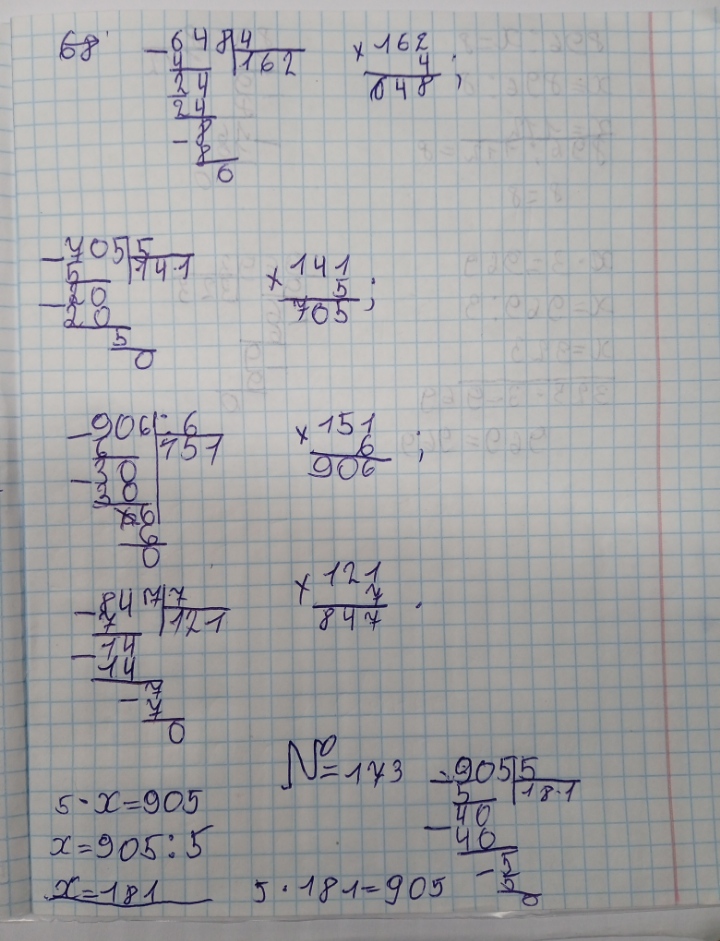 68
648 | 4
4 | 162
24
24
- 8
8
0
× 162
4
648 ;
- 705 | 5
5 | 141
- 20
20
5
0
× 141
5
705 ;
- 906 | 6
6 | 151
- 30
30
6
6
0
× 151
6
906 ;
- 847 | 7
7 | 121
- 14
14
- 7
7
0
× 121
7
847 .
№ 173
5 · x = 905
x = 905 : 5
x = 181
5 · 181 = 905
- 905 | 5
5 | 181
- 40
40
- 5
5
0